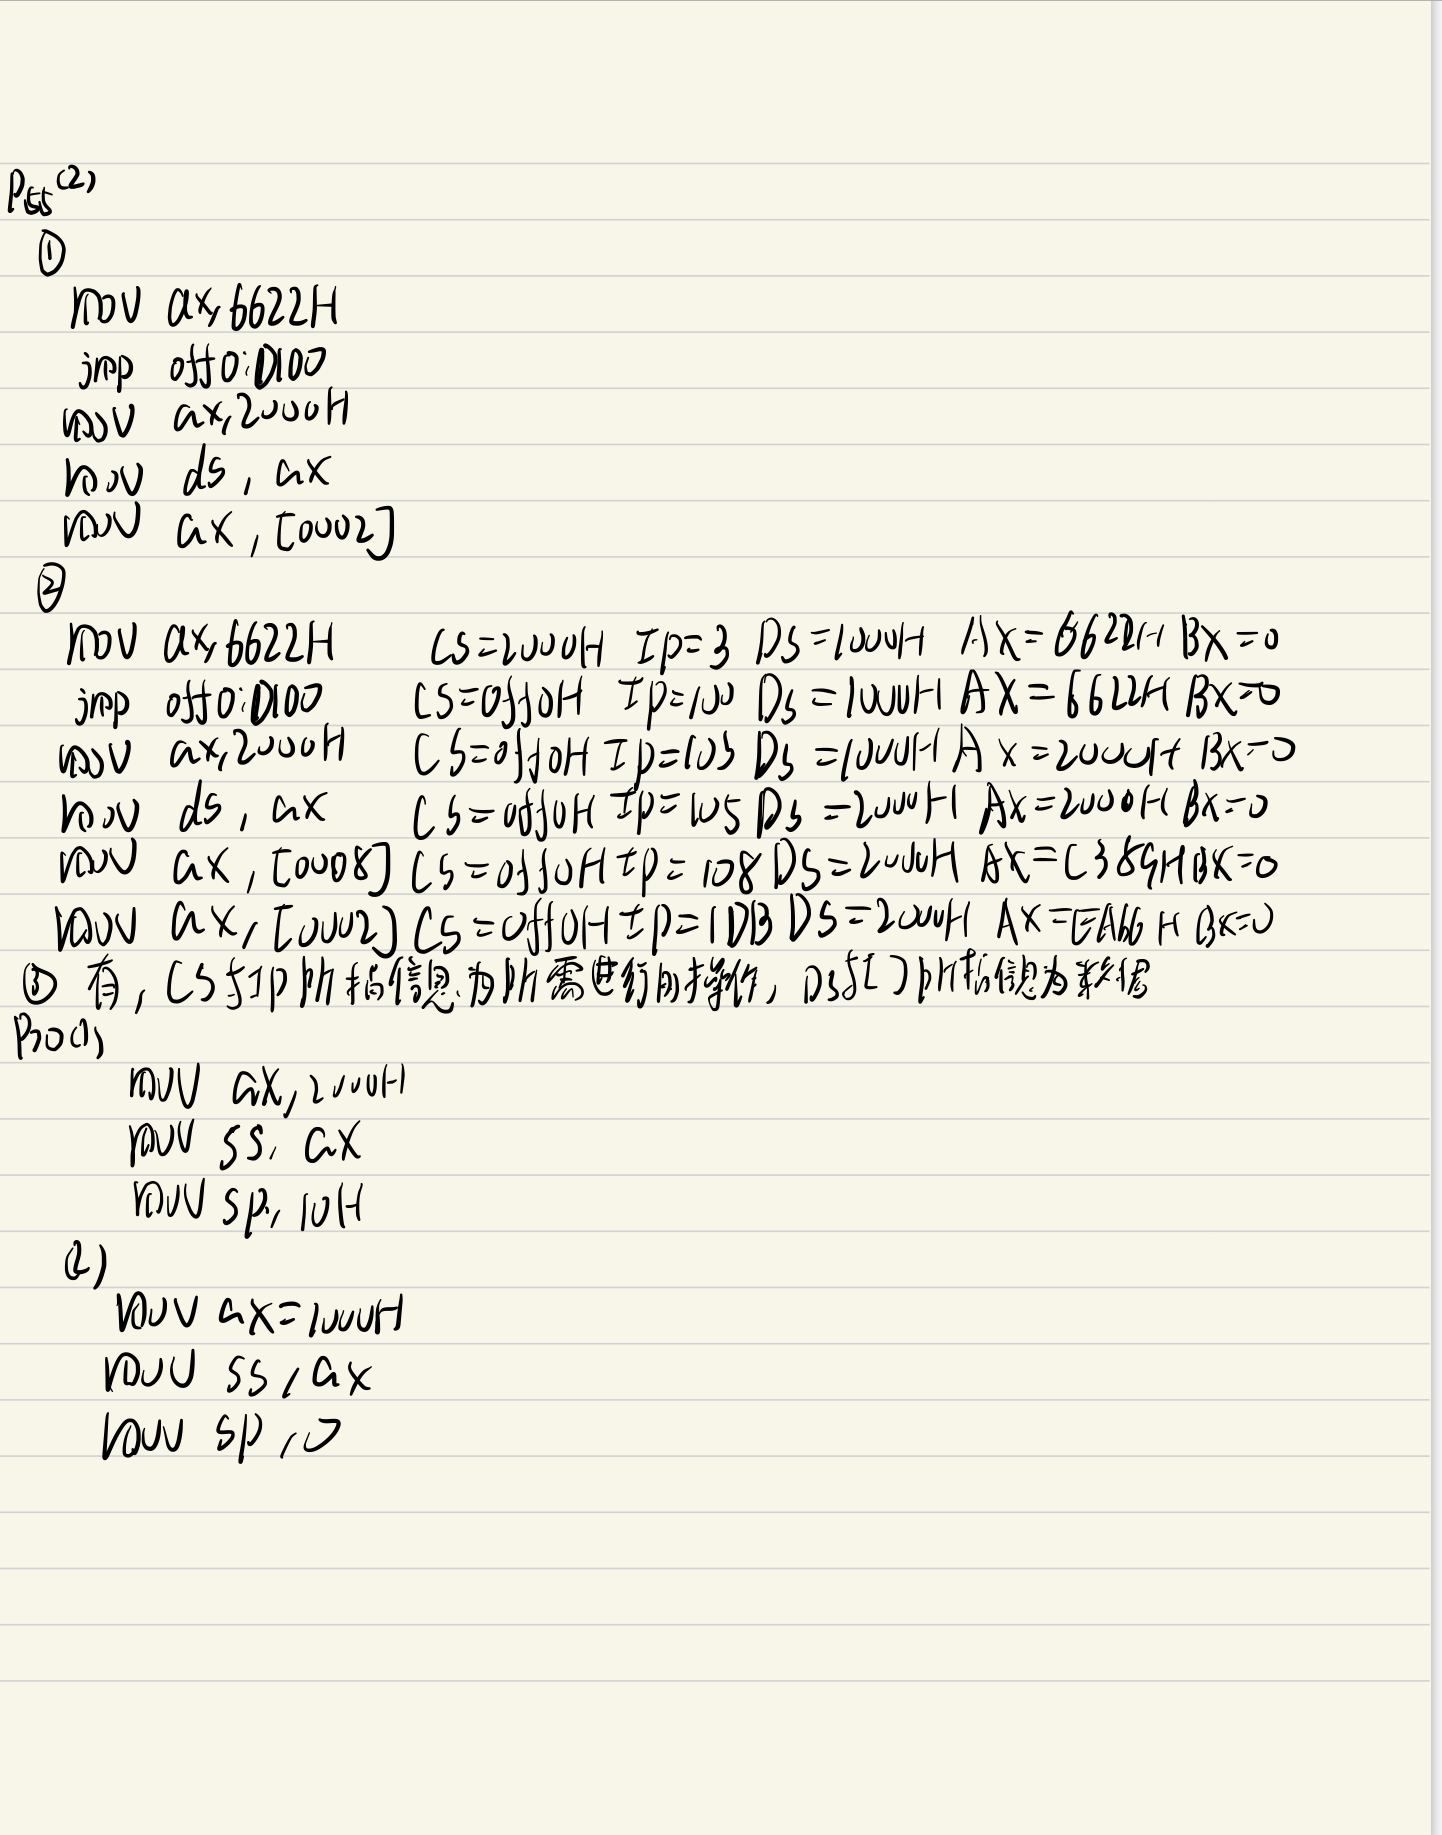 P55(2)
①
mov ax,6622H
jmp 0ff0:0100
mov ax,2000H
mov ds,ax
mov ax,[0002]
②
mov ax,6622H CS=2000H Ip=3 DS=1000H AX=6622H BX=0
jmp 0ff0:0100 CS=0ff0H Ip=100 Ds=1000H AX=6622H BX=0
mov ax,2000H CS=0ff0H Ip=103 Ds=1000H AX=2000H BX=0
mov ds,ax CS=0ff0H Ip=105 Ds=2000H AX=2000H BX=0
mov ax,[0008] CS=0ff0H Ip=108 DS=2000H AX=C389H BX=0
mov ax,[0002] CS=0ff0H Ip=10B DS=2000H AX=EA66H BX=0
③ 有,CS与IP所指信息为所需进行的操作,DS与[]所指信息为数据
P70(1)
mov ax,2000H
mov ss,ax
mov sp,10H
(2)
mov ax=1000H
mov ss,ax
mov sp,0